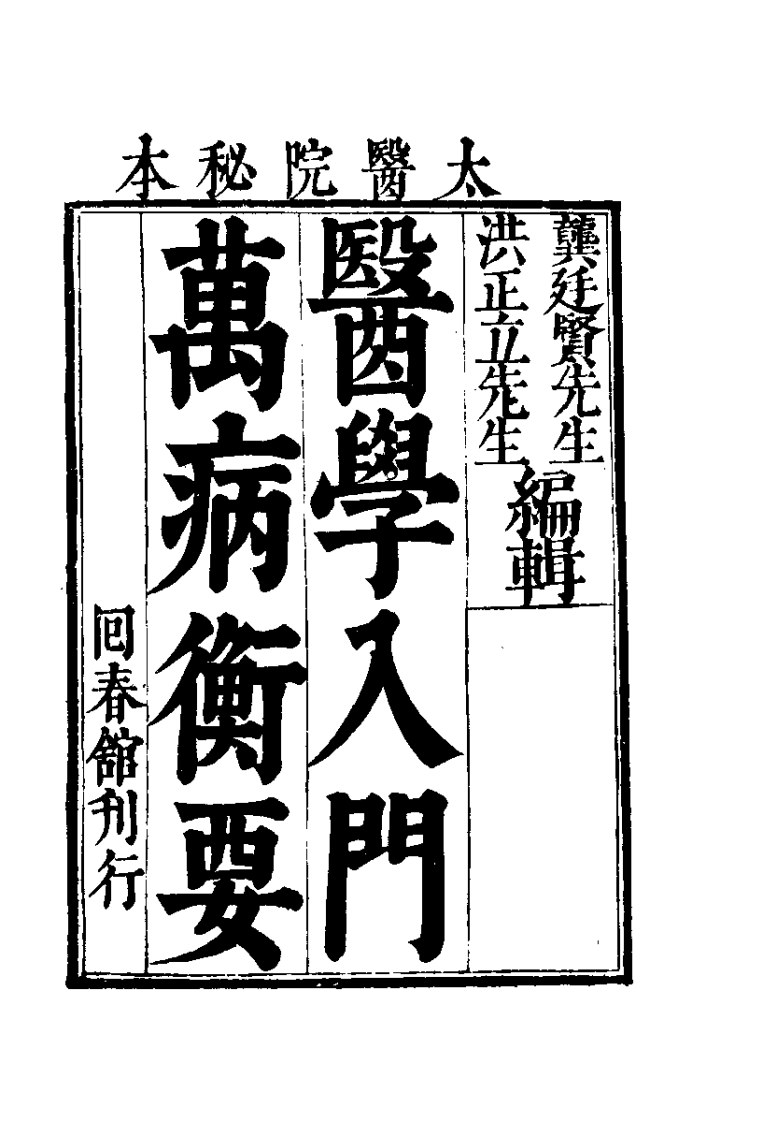 太醫院秘本
龔廷賢先生
洪正立先生
編輯
醫學入門
萬病衡要
回春舘刊行